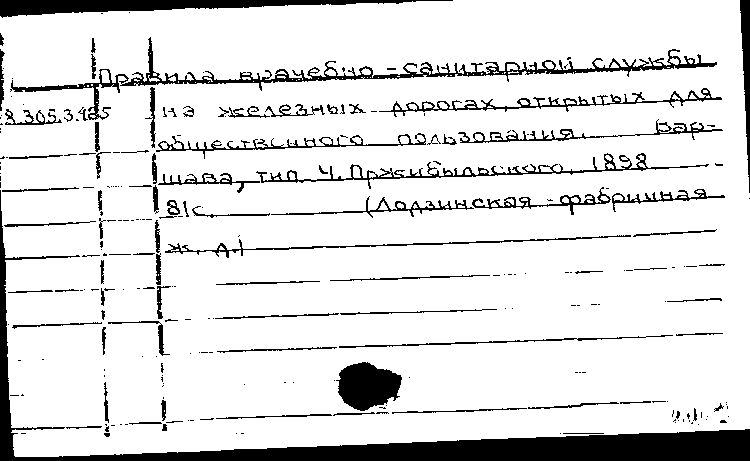 Правила врачебно-санитарной службы
8.305.3.185 на железных дорогах, открытых для
общественного пользования. Вар-
шава, тип. Ч. Пржибыльского, 1898
81с. (Лодзинская-фабричная
ж. д.)